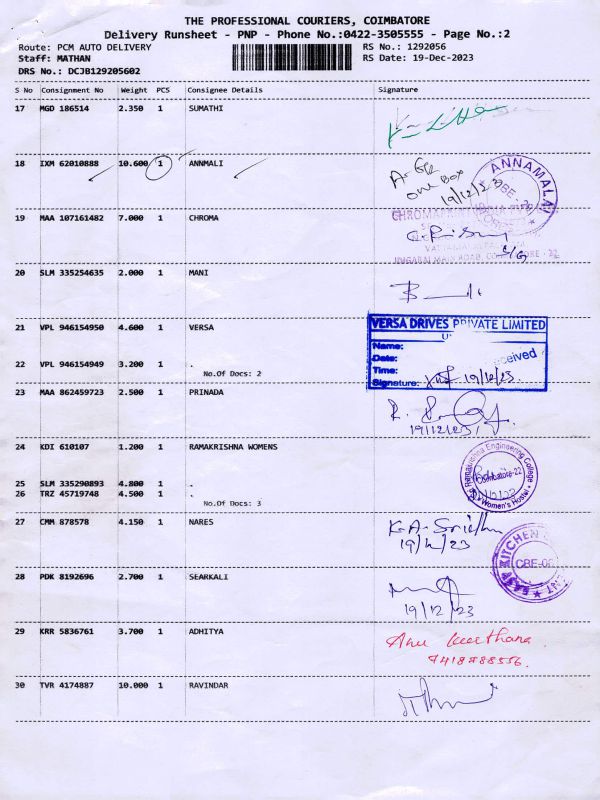 THE PROFESSIONAL COURIERS, COIMBATORE
Delivery Runsheet - PNP - Phone No.:0422-3505555 - Page No.:2
Route: PCM AUTO DELIVERY
RS No.: 1292056
Staff: MATHAN
RS Date: 19-Dec-2023
DRS No.: DCJB129205602
S No Consignment No Weight PCS Consignee Details Signature
17 MGD 186514 2.350 1 SUMATHI
18 IXM 62010888 10.600 1 ANNMALI
one Box
19/12/23
ANNAMALAI
19 MAA 107161482 7.000 1 CHROMA
20 SLM 335254635 2.000 1 MANI
21 VPL 946154950 4.600 1 VERSA
VERSA DRIVES PRIVATE LIMITED
Name:
Date:
Time:
Signature: 19/12/23.
22 VPL 946154949 3.200 1 .
No.Of Docs: 2
23 MAA 862459723 2.500 1 PRINADA
19/12/23
24 KDI 610107 1.200 1 RAMAKRISHNA WOMENS
Ramakrishna Engineering College
Coimbatore-22
Women's Hostel
25 SLM 335290893 4.800 1 .
26 TRZ 45719748 4.500 1 .
No.Of Docs: 3
27 CMM 878578 4.150 1 NARES
19/12/23
KITCHEN
28 PDK 8192696 2.700 1 SEARKALI
19/12/23
29 KRR 5836761 3.700 1 ADHITYA
Anu Keerthana
30 TVR 4174887 10.000 1 RAVINDAR